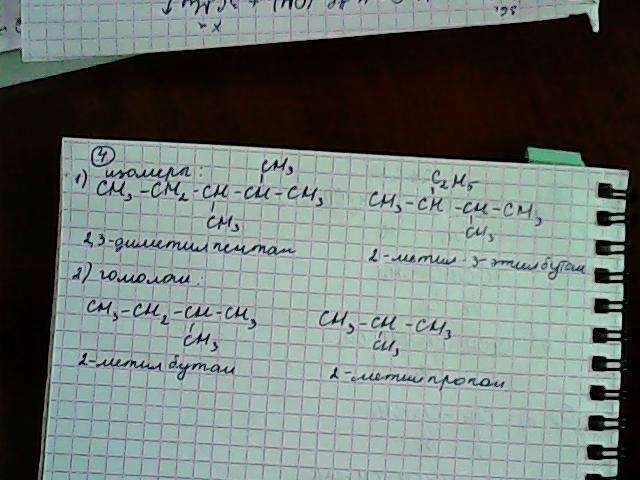 ④
изомеры:
1) CH₃-CH₂-CH-CH-CH₃
CH₃
CH₃
2,3-диметилпентан
C₂H₅
CH₃-CH-CH-CH₃
CH₃
2-метил-3-этилбутан
2) гомологи:
CH₃-CH₂-CH-CH₃
CH₃
2-метилбутан
CH₃-CH-CH₃
CH₃
2-метилпропан